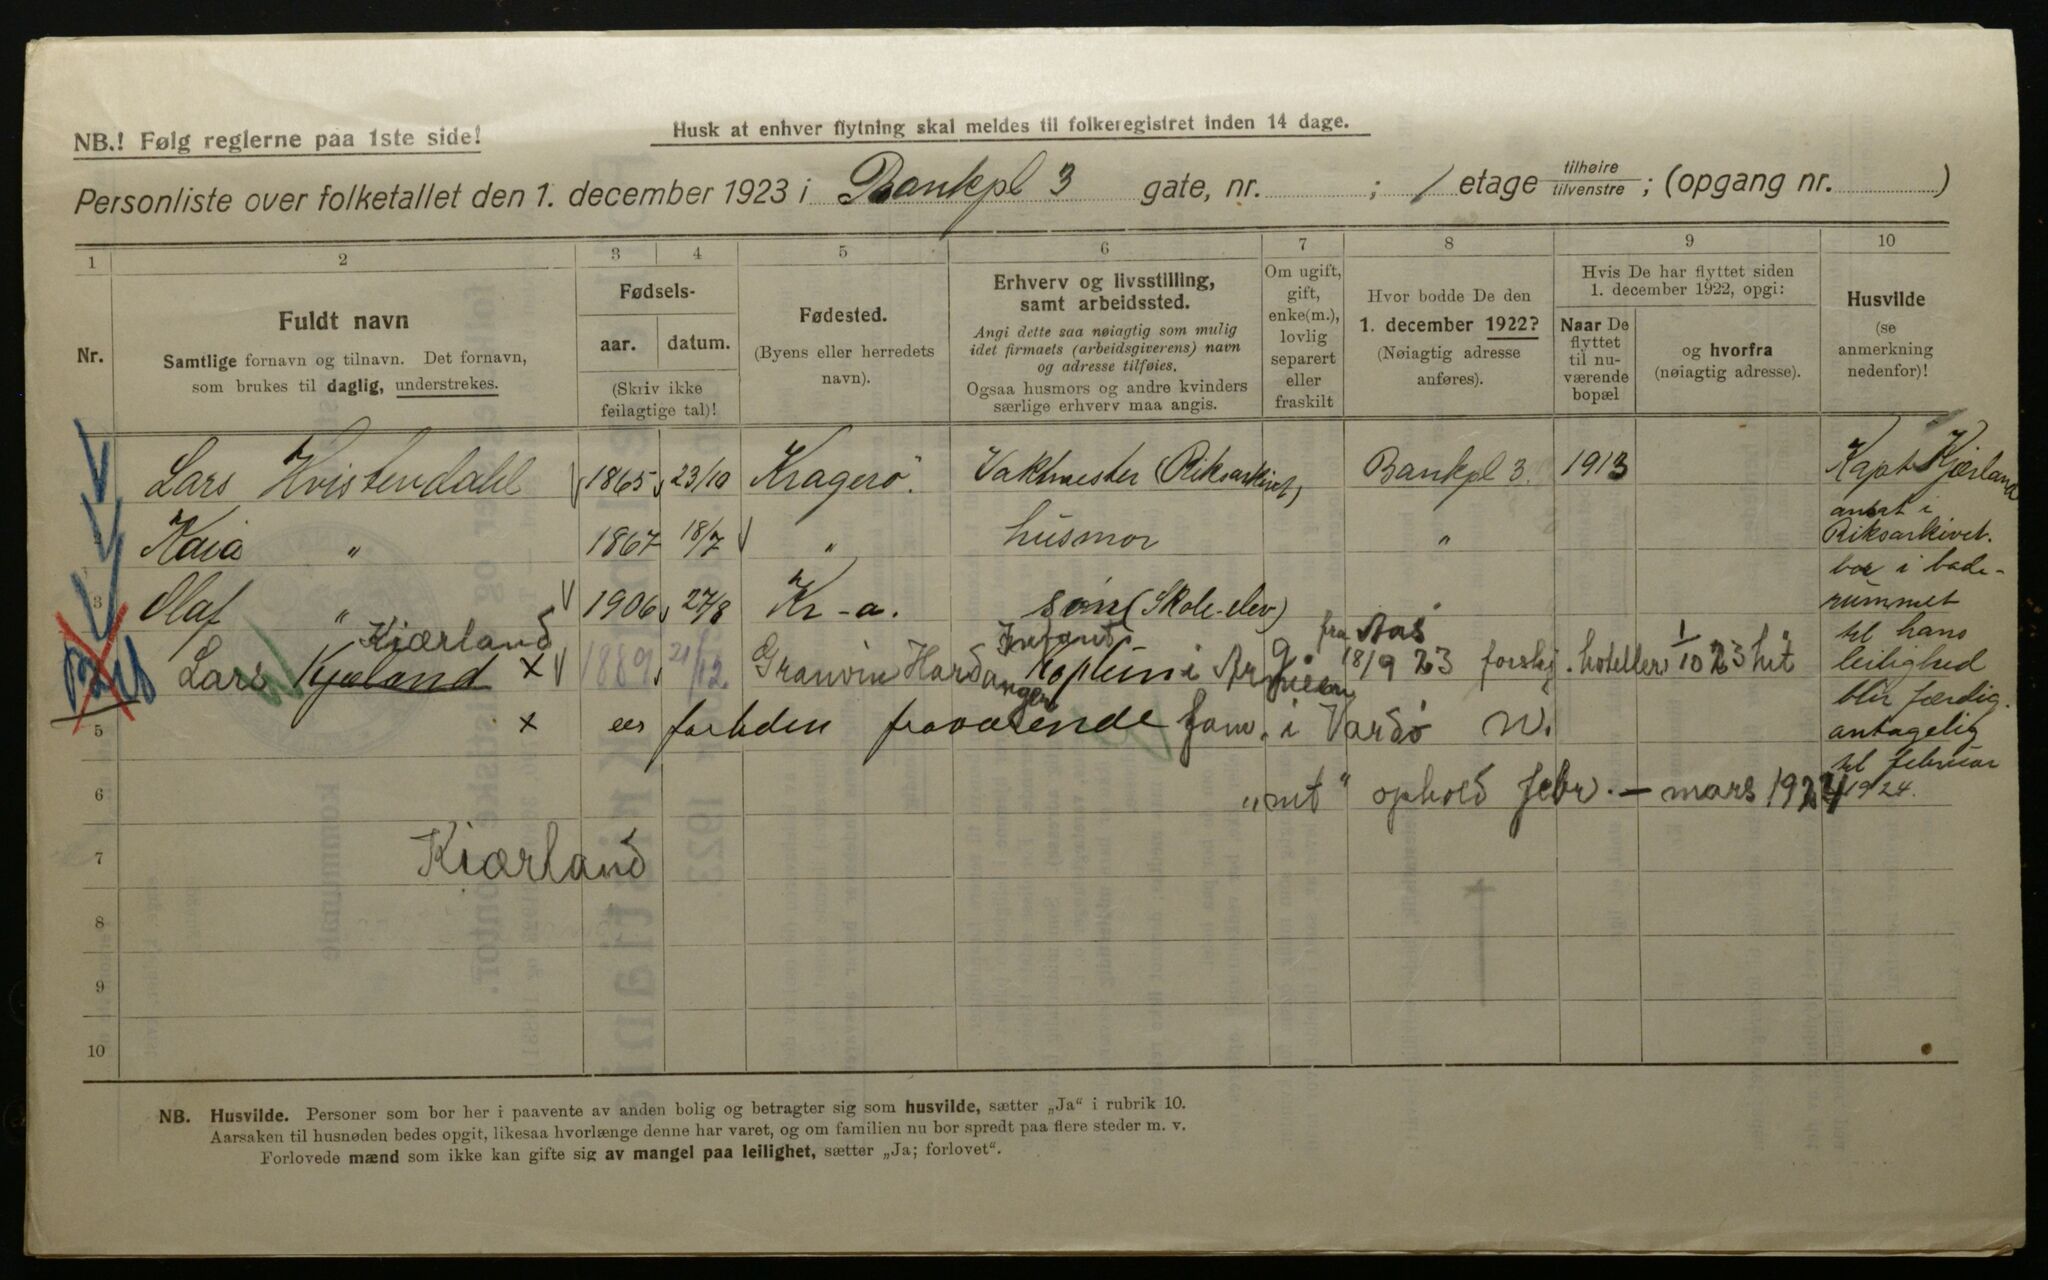 NB.! Følg reglerne paa 1ste side!
Husk at enhver flytning skal meldes til folkeregistret inden 14 dage.
Personliste over folketallet den 1. december 1923 i Bankpl 3 gate, nr. ; 1 etage tilhøire tilvenstre ; (opgang nr. )
1 2 3 4 5 6 7 8 9 10
Nr.
Fuldt navn
Samtlige fornavn og tilnavn. Det fornavn,
som brukes til daglig, understrekes.
Fødsels-
aar. datum.
(Skriv ikke
feilagtige tal)!
Fødested.
(Byens eller herredets
navn).
Erhverv og livsstilling,
samt arbeidssted.
Angi dette saa nøiagtig som mulig
idet firmaets (arbeidsgiverens) navn
og adresse tilføies.
Ogsaa husmors og andre kvinders
særlige erhverv maa angis.
Om ugift,
gift,
enke(m.),
lovlig
separert
eller
fraskilt
Hvor bodde De den
1. december 1922?
(Nøiagtig adresse
anføres).
Hvis De har flyttet siden
1. december 1922, opgi:
Naar De
flyttet
til nu-
værende
bopæl
og hvorfra
(nøiagtig adresse).
Husvilde
(se
anmerkning
nedenfor)!
Lars Hvistendahl 1865 23/10 Kragerø. Vaktmester (Riksarkivet) Bankpl 3. 1913
Kaia " 1867 18/7 " husmor "
3 Olaf " 1906 27/8 Kr-a. søn (Skole-elev) "
Kiærland
Lars Kjæland × 1889 21/12 Granvin Hardanger Kaptein i fra Aas 18/9 23 forskj. hoteller 1/10 23 hit
5 × er fortiden fraværende fam. i Vardø N.
6 "mt" ophold febr. – mars 1924
7 Kiærland
8
9
10
Kapt Kjærland
ansat i
Riksarkivet.
bor i bade-
rummet
til hans
leilighed
blir færdig.
antagelig
til februar
1924.
NB. Husvilde. Personer som bor her i paavente av anden bolig og betragter sig som husvilde, sætter „Ja“ i rubrik 10.
Aarsaken til husnøden bedes opgit, likesaa hvorlænge denne har varet, og om familien nu bor spredt paa flere steder m. v.
Forlovede mænd som ikke kan gifte sig av mangel paa leilighet, sætter „Ja; forlovet“.